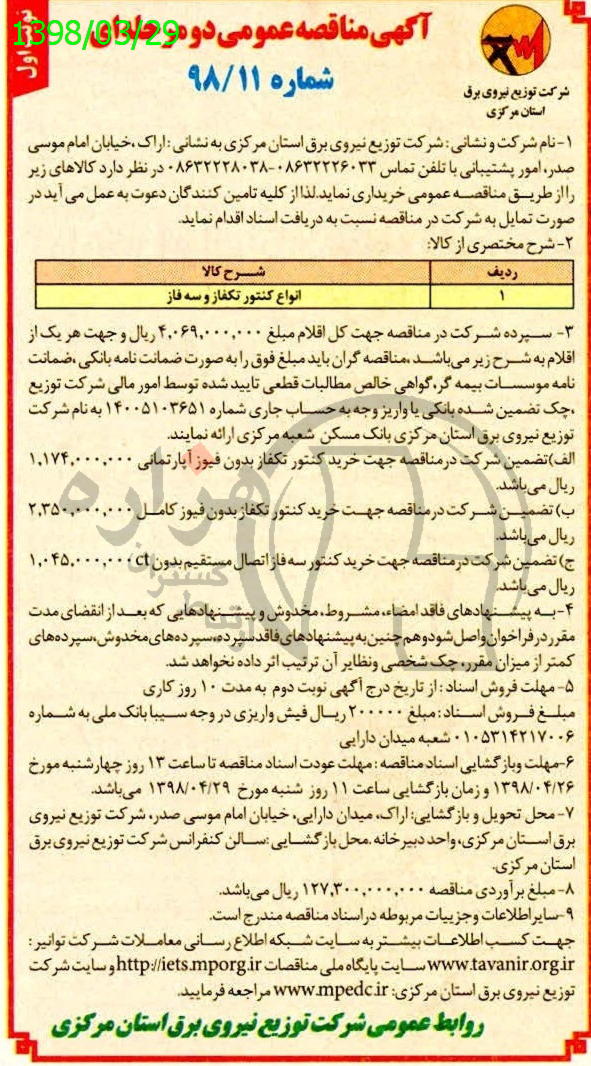 1398/03/29
نوبت اول
آگهی مناقصه عمومی دو مرحله‌ای
شماره ۹۸/۱۱
شرکت توزیع نیروی برق
استان مرکزی
۱-نام شرکت و نشانی: شرکت توزیع نیروی برق استان مرکزی به نشانی: اراک، خیابان امام موسی
صدر، امور پشتیبانی با تلفن تماس ۰۸۶۳۲۲۲۶۰۳۳-۰۸۶۳۲۲۲۸۰۳۸ در نظر دارد کالاهای زیر
را از طریق مناقصه عمومی خریداری نماید. لذا از کلیه تامین کنندگان دعوت به عمل می آید در
صورت تمایل به شرکت در مناقصه نسبت به دریافت اسناد اقدام نماید.
۲-شرح مختصری از کالا:
ردیف شرح کالا
۱ انواع کنتور تکفاز و سه فاز
۳- سپرده شرکت در مناقصه جهت کل اقلام مبلغ ۴,۰۶۹,۰۰۰,۰۰۰ ریال و جهت هر یک از
اقلام به شرح زیر می‌باشد، مناقصه گران باید مبلغ فوق را به صورت ضمانت نامه بانکی ،ضمانت
نامه موسسات بیمه گر، گواهی خالص مطالبات قطعی تایید شده توسط امور مالی شرکت توزیع
،چک تضمین شده بانکی یا واریز وجه به حساب جاری شماره ۱۴۰۰۵۱۰۳۶۵۱ به نام شرکت
توزیع نیروی برق استان مرکزی بانک مسکن شعبه مرکزی ارائه نمایند.
الف)تضمین شرکت در مناقصه جهت خرید کنتور تکفاز بدون فیوز آپارتمانی ۱,۱۷۴,۰۰۰,۰۰۰
ریال می‌باشد.
ب) تضمین شرکت در مناقصه جهت خرید کنتور تکفاز بدون فیوز کامل ۲,۳۵۰,۰۰۰,۰۰۰
ریال می‌باشد.
ج) تضمین شرکت در مناقصه جهت خرید کنتور سه فاز اتصال مستقیم بدون ct ۱,۰۴۵,۰۰۰,۰۰۰
ریال می‌باشد.
۴-به پیشنهادهای فاقد امضاء، مشروط، مخدوش و پیشنهادهایی که بعد از انقضای مدت
مقرر در فراخوان واصل شود و هم چنین به پیشنهادهای فاقد سپرده، سپرده‌های مخدوش، سپرده‌های
کمتر از میزان مقرر، چک شخصی ونظایر آن ترتیب اثر داده نخواهد شد.
۵- مهلت فروش اسناد: از تاریخ درج آگهی نوبت دوم به مدت ۱۰ روز کاری
مبلغ فروش اسناد: مبلغ ۲۰۰۰۰۰ ریال فیش واریزی در وجه سیبا بانک ملی به شماره
۰۱۰۵۳۱۴۲۱۷۰۰۶ شعبه میدان دارایی
۶-مهلت وبازگشایی اسناد مناقصه: مهلت عودت اسناد مناقصه تا ساعت ۱۳ روز چهارشنبه مورخ
۱۳۹۸/۰۴/۲۶ و زمان بازگشایی ساعت ۱۱ روز شنبه مورخ ۱۳۹۸/۰۴/۲۹ می‌باشد.
۷- محل تحویل و بازگشایی: اراک، میدان دارایی، خیابان امام موسی صدر، شرکت توزیع نیروی
برق استان مرکزی، واحد دبیرخانه. محل بازگشایی: سالن کنفرانس شرکت توزیع نیروی برق
استان مرکزی.
۸- مبلغ برآوردی مناقصه ۱۲۷,۳۰۰,۰۰۰,۰۰۰ ریال می‌باشد.
۹-سایر اطلاعات وجزییات مربوطه در اسناد مناقصه مندرج است.
جهت کسب اطلاعات بیشتر به سایت شبکه اطلاع رسانی معاملات شرکت توانیر:
www.tavanir.org.ir سایت پایگاه ملی مناقصات http://iets.mporg.ir و سایت شرکت
توزیع نیروی برق استان مرکزی: www.mpedc.ir مراجعه فرمایید.
روابط عمومی شرکت توزیع نیروی برق استان مرکزی